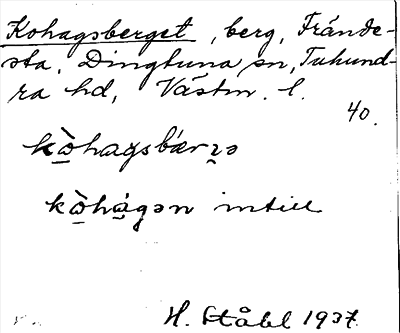 Kohagsberget, berg, Frände-
sta, Dingtuna sn, Tuhund-
ra hd, Västm. l.
40.
kò̠hagsbærɟə
kò̠há̠gən intill
H. Ståhl 1937